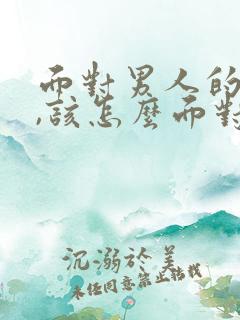 而對男人的
,該怎麼而對
沉溺於美
未經同意禁止轉載